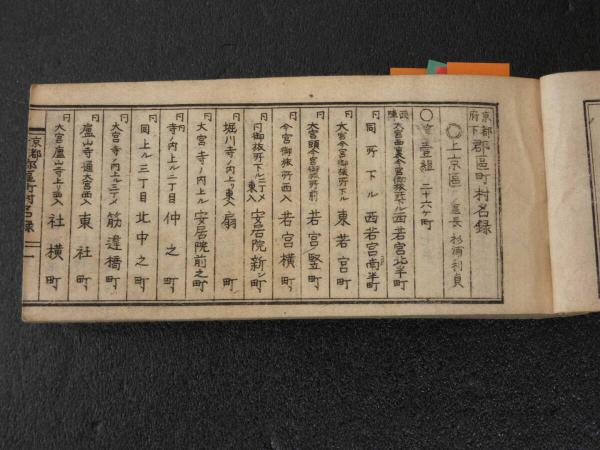 京都府下 郡區町村名録
◎上京區 區長 杉浦利貞
〇壹組 二十六ヶ町
大宮西裏今宮御旅所下ル 西若宮北半町
同 同所下ル 西若宮南半町
同 大宮今宮御旅所下ル 東若宮町
同 大宮頭今宮御旅所前 若宮竪町
同 今宮御旅所西入 若宮横町
同 同御旅所下ル二丁メ東入 安居院新シ町
同 堀川寺ノ内上リ東入 扇町
同 大宮寺ノ内上ル 安居院前之町
同 寺ノ内上ル二丁目 仲之町
同 同上ル三丁目 北中之町
同 大宮寺ノ内上ル三丁メ 筋違橋町
同 廬山寺通大宮西入 東社町
同 大宮廬山寺上ル西入 社横町
京都郡區町村名録 一